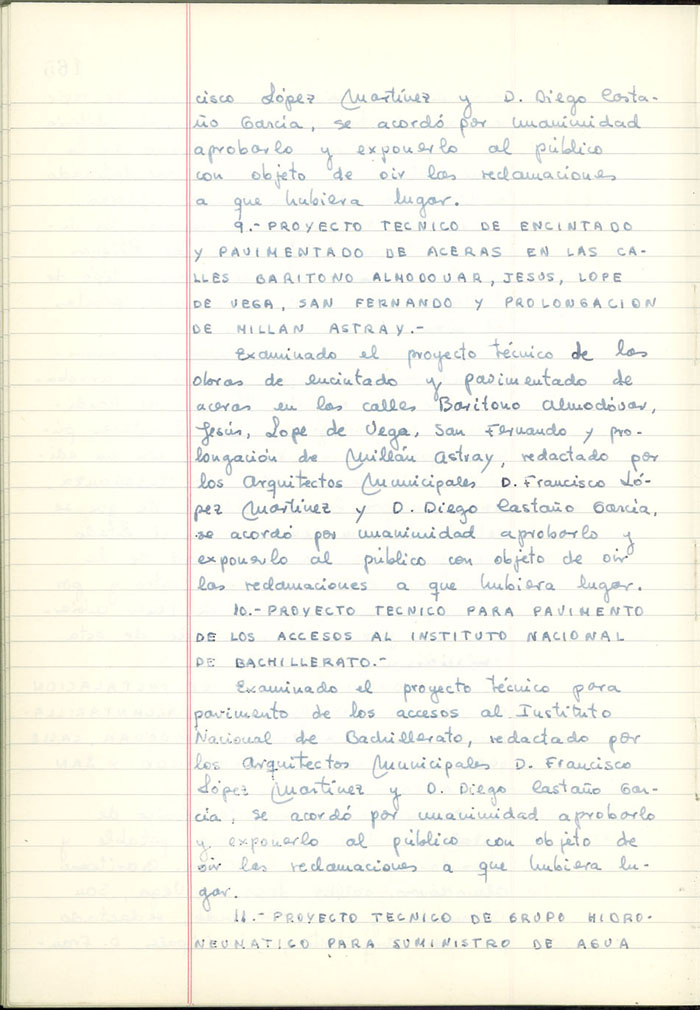 cisco López Martínez y D. Diego Casta-
ño García, se acordó por unanimidad
aprobarlo y exponerlo al público
con objeto de oir las reclamaciones
a que hubiera lugar.
9.- PROYECTO TECNICO DE ENCINTADO
Y PAVIMENTADO DE ACERAS EN LAS CA-
LLES BARITONO ALMODOVAR, JESUS, LOPE
DE VEGA, SAN FERNANDO Y PROLONGACION
DE MILLAN ASTRAY.-
Examinado el proyecto técnico de las
obras de encintado y pavimentado de
aceras en las calles Barítono Almodóvar,
Jesús, Lope de Vega, San Fernando y pro-
longación de Millán Astray, redactado por
los Arquitectos Municipales D. Francisco Ló-
pez Martínez y D. Diego Castaño García,
se acordó por unanimidad aprobarlo y
exponerlo al público con objeto de oir
las reclamaciones a que hubiera lugar.
10.- PROYECTO TECNICO PARA PAVIMENTO
DE LOS ACCESOS AL INSTITUTO NACIONAL
DE BACHILLERATO.-
Examinado el proyecto técnico para
pavimento de los accesos al Instituto
Nacional de Bachillerato, redactado por
los Arquitectos Municipales D. Francisco
López Martínez y D. Diego Castaño Gar-
cía, se acordó por unanimidad aprobarlo
y exponerlo al público con objeto de
oir las reclamaciones a que hubiera lu-
gar.
11.- PROYECTO TECNICO DE GRUPO HIDRO-
NEUNATICO PARA SUMINISTRO DE AGUA